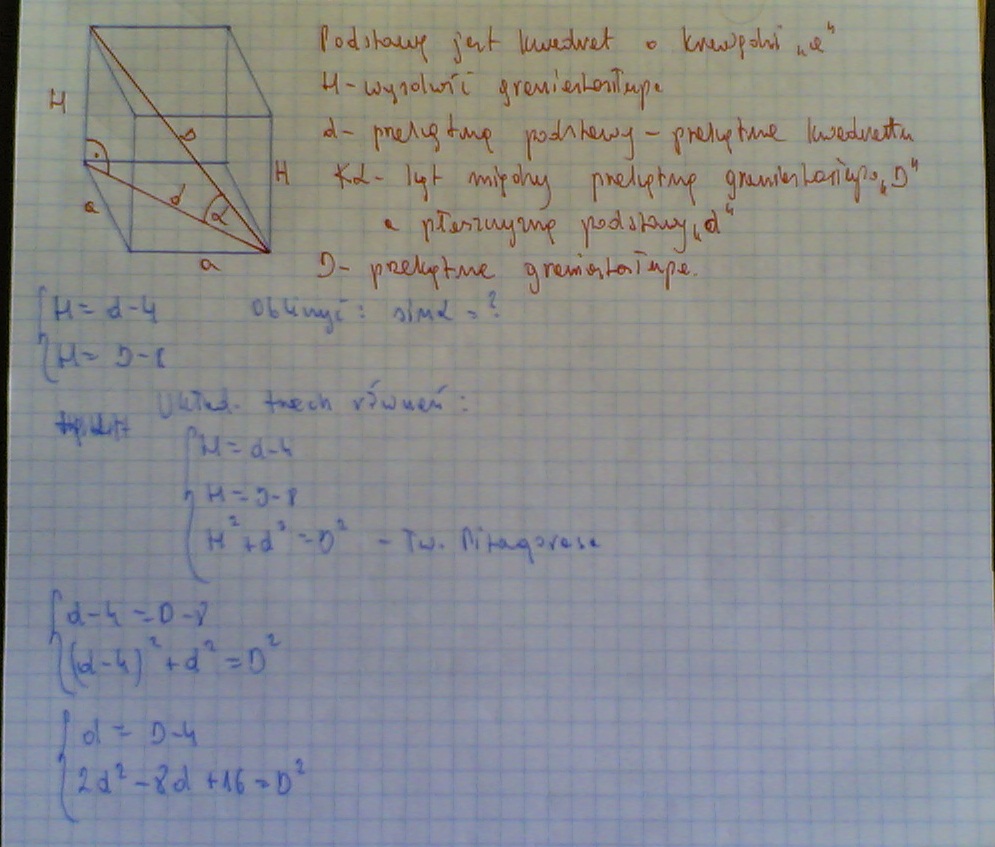 Podstawą jest kwadrat o krawędzi „a"
H - wysokość graniastosłupa
d - przekątna podstawy - przekątna kwadratu
Kα - kąt między przekątną graniastosłupa „D"
a płaszczyzną podstawy „d"
D - przekątna graniastosłupa.
H
D
H
a
d
α
a
H = d-4 Obliczyć: sinα = ?
H = D-8
Układ trzech równań:
H = d-4
H = D-8
H² + d² = D² - Tw. Pitagorasa
d-4 = D-8
(d-4)² + d² = D²
d = D-4
2d² - 8d + 16 = D²